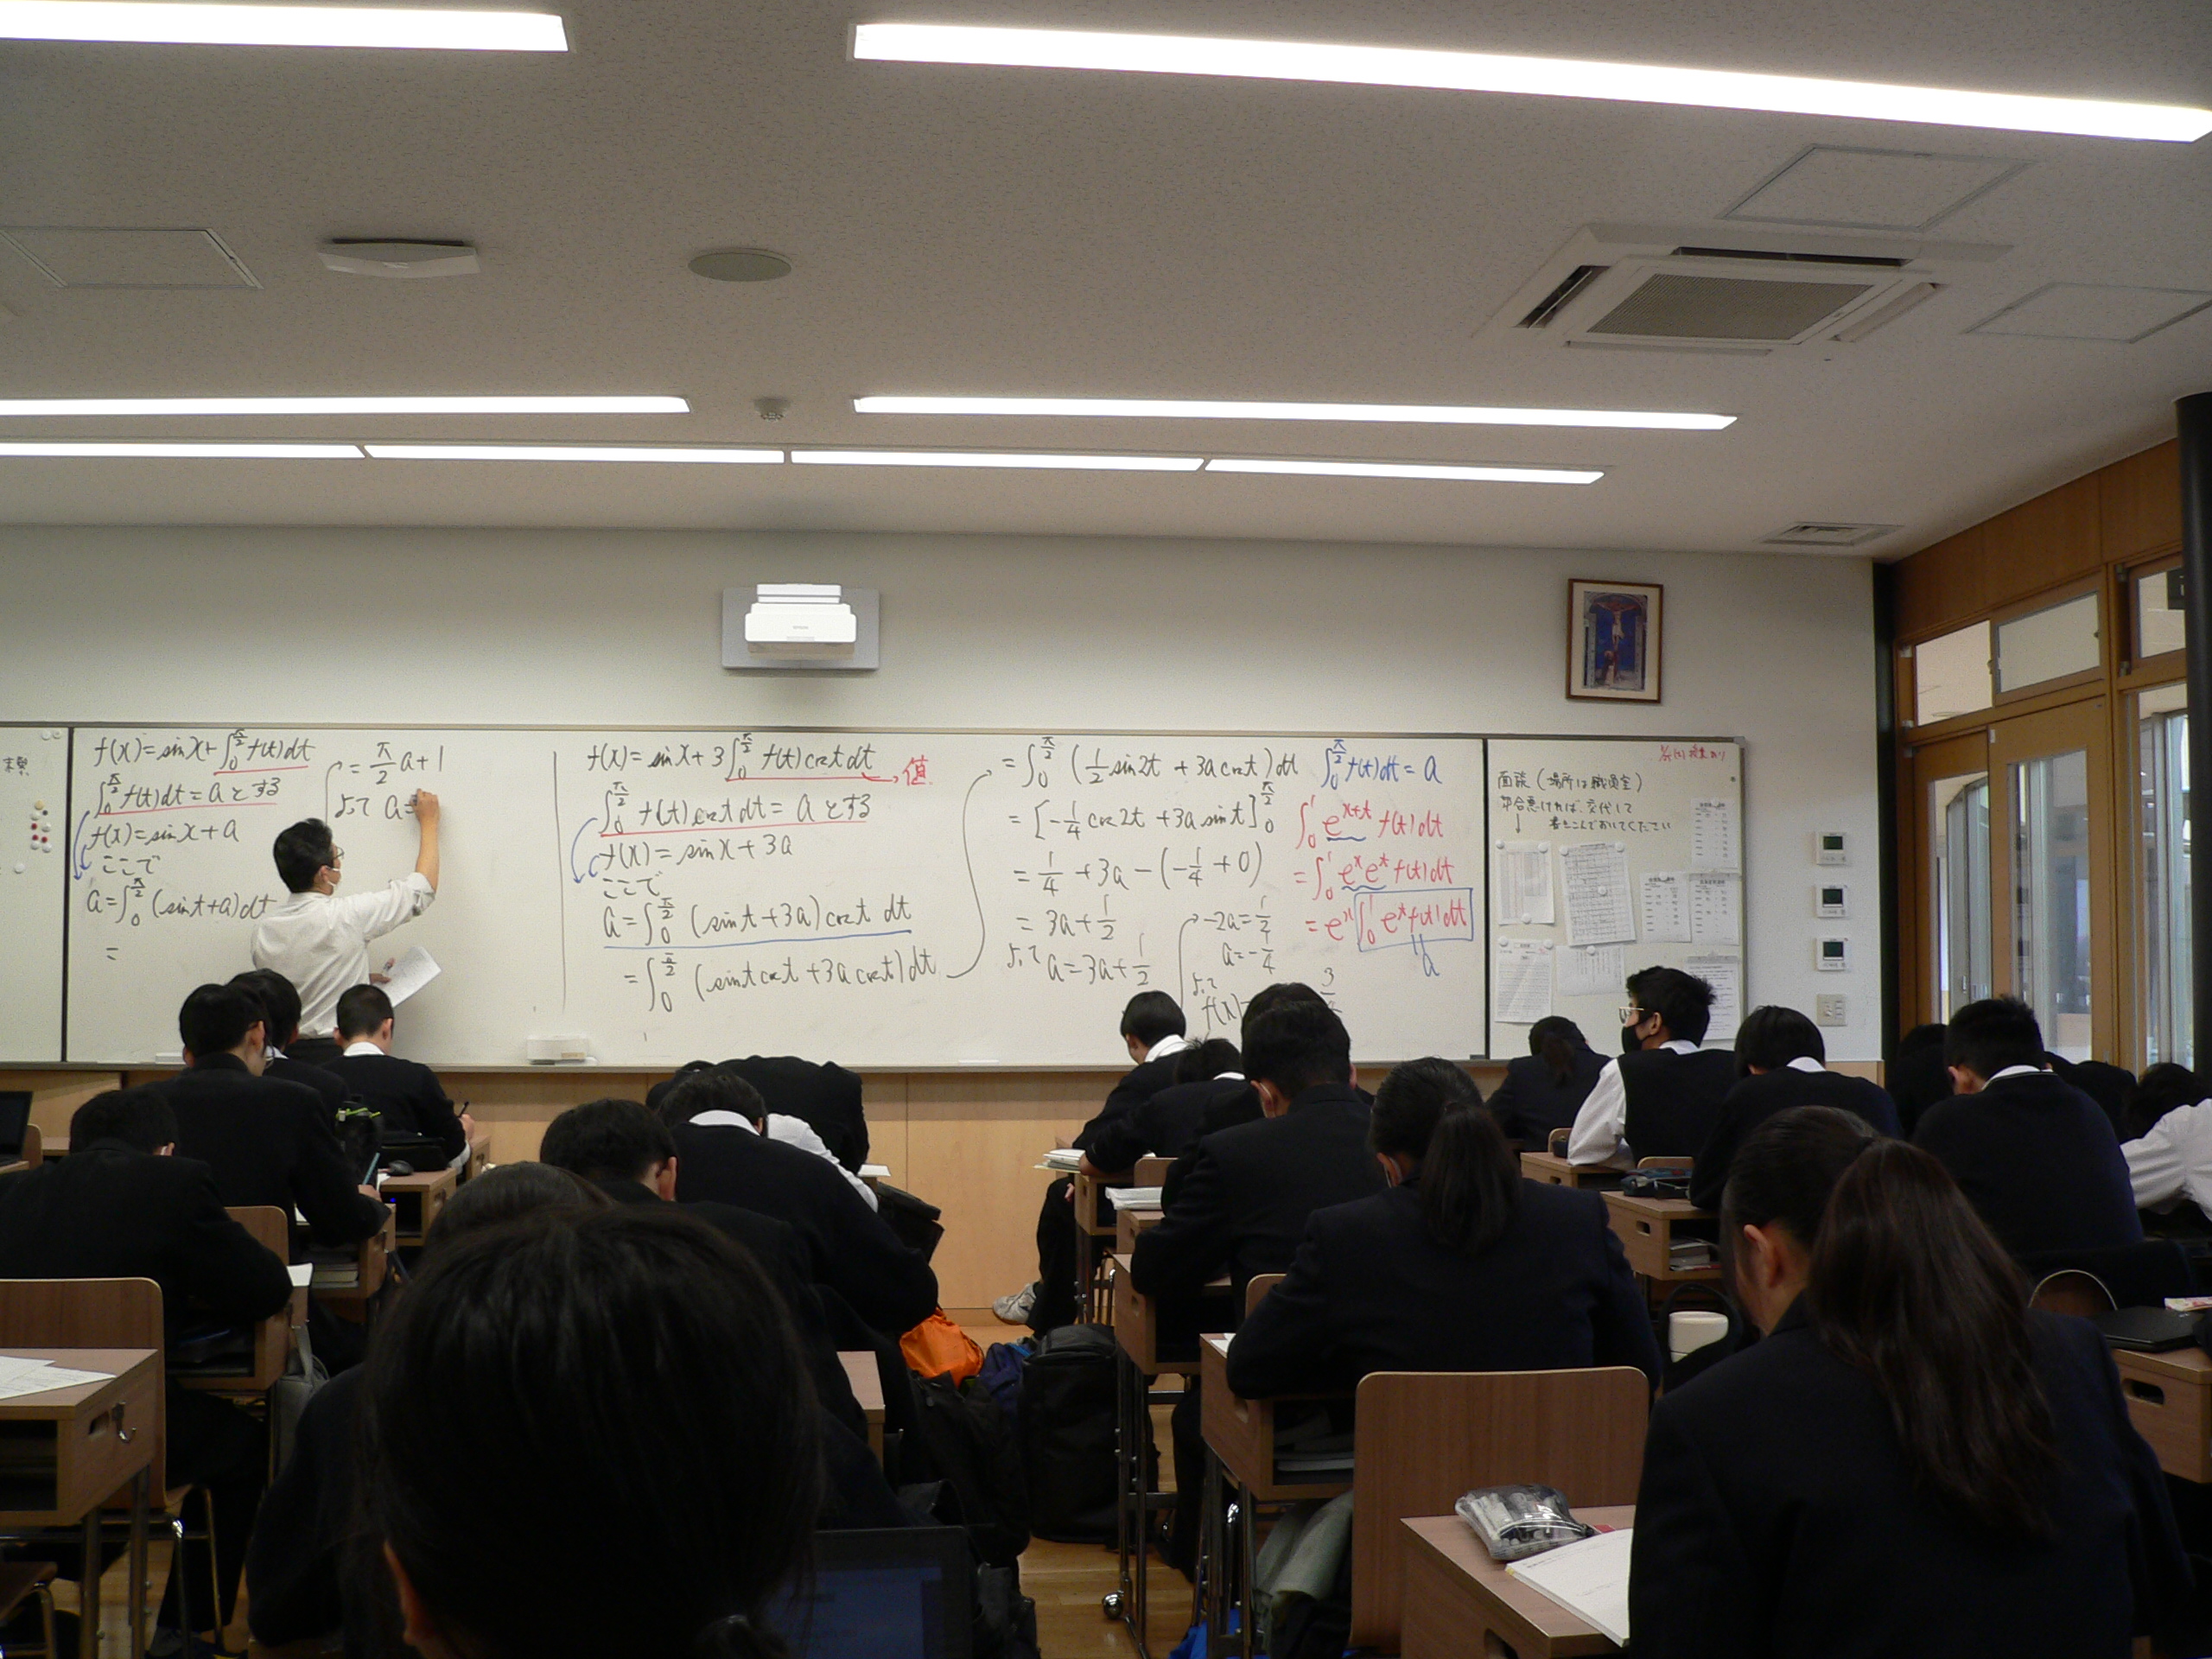 f(x)=sinx+∫₀^{π/2} f(t)dt
∫₀^{π/2} f(t)dt=aとする
f(x)=sinx+a
ここで
a=∫₀^{π/2} (sint+a)dt
=
=π/2 a+1
よって a=
f(x)=sinx+3∫₀^{π/2} f(t)costdt → 値
∫₀^{π/2} f(t)costdt=aとする
f(x)=sinx+3a
ここで
a=∫₀^{π/2} (sint+3a)cost dt
=∫₀^{π/2} (sintcost+3acost)dt
=∫₀^{π/2} (1/2 sin2t+3acost)dt
=[-1/4 cos2t+3asint]₀^{π/2}
=1/4+3a-(-1/4+0)
=3a+1/2
よって a=3a+1/2
-2a=1/2
a=-1/4
よって
f(x)=
∫₀^{π/2} f(t)dt=a
∫₀^1 e^{x+t} f(t)dt
=∫₀^1 e^x e^t f(t)dt
=e^x∫₀^1 e^t f(t)dt
a
面談(場所は職員室)
都合悪ければ、交代して
書きこんでおいてください